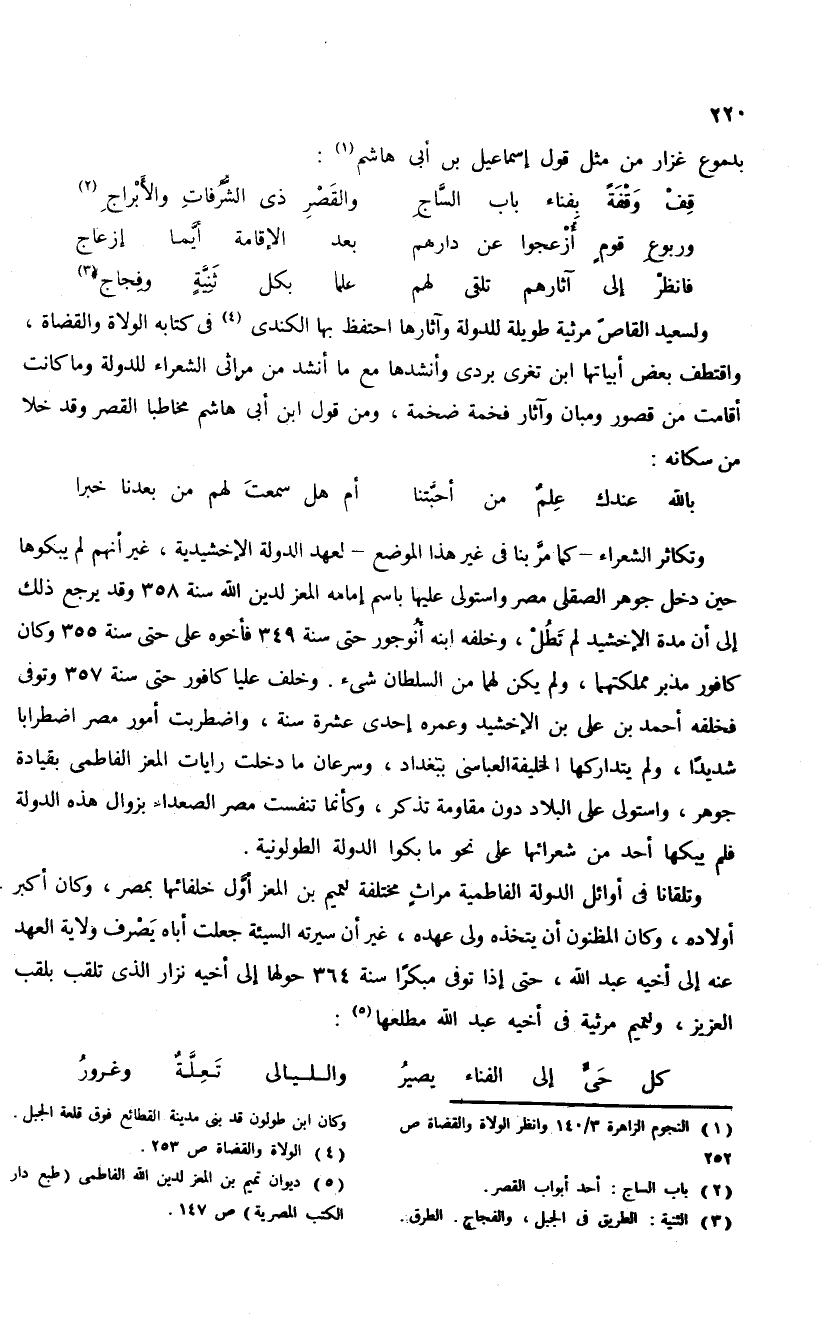 ٢٢٠
بدموع غزار من مثل قول إسماعيل بن أبى هاشم(١) :
قِفْ وَقْفَةً بِفناء باب السَّاجِ والقَصْرِ ذى الشُّرفاتِ والأَبْراجِ(٢)
وربوعِ قومٍ أُزْعجوا عن دارهم بعد الإقامة أيَّما إزعاج
فانظرْ إلى آثارهم تلقى لهم علما بكل ثَنِيَّةٍ وفِجاجِ(٣)
ولسعيد القاصّ مرثية طويلة للدولة وآثارها احتفظ بها الكندى (٤) فى كتابه الولاة والقضاة ،
واقتطف بعض أبياتها ابن تغرى بردى وأنشدها مع ما أنشد من مراثى الشعراء للدولة وما كانت
أقامت من قصور ومبان وآثار فخمة ضخمة ، ومن قول ابن أبى هاشم مخاطبا القصر وقد خلا
من سكانه :
بالله عندك عِلمٌ من أحبَّتنا أم هل سمعتَ لهم من بعدنا خبرا
وتكاثر الشعراء – كما مرَّ بنا فى غير هذا الموضع – لعهد الدولة الإخشيدية ، غير أنهم لم يبكوها
حين دخل جوهر الصقلى مصر واستولى عليها باسم إمامه المعز لدين الله سنة ٣٥٨ وقد يرجع ذلك
إلى أن مدة الإخشيد لم تَطُلْ ، وخلفه ابنه أنُوجور حتى سنة ٣٤٩ فأخوه على حتى سنة ٣٥٥ وكان
كافور مدبر مملكتهما ، ولم يكن لهما من السلطان شىء . وخلف عليا كافور حتى سنة ٣٥٧ وتوفى
فخلفه أحمد بن على بن الإخشيد وعمره إحدى عشرة سنة ، واضطربت أمور مصر اضطرابا
شديدًا ، ولم يتداركها الخليفة العباسى ببغداد ، وسرعان ما دخلت رايات المعز الفاطمى بقيادة
جوهر ، واستولى على البلاد دون مقاومة تذكر ، وكأنما تنفست مصر الصعداء بزوال هذه الدولة
فلم يبكها أحد من شعرائها على نحو ما بكوا الدولة الطولونية .
وتلقانا فى أوائل الدولة الفاطمية مراثٍ مختلفة لتميم بن المعز أوَّل خلفائها بمصر ، وكان أكبر
أولاده ، وكان المظنون أن يتخذه ولى عهده ، غير أن سيرته السيئة جعلت أباه يَصْرف ولاية العهد
عنه إلى أخيه عبد الله ، حتى إذا توفى مبكرًا سنة ٣٦٤ حولها إلى أخيه نزار الذى تلقب بلقب
العزيز ، ولتميم مرثية فى أخيه عبد الله مطلعها(٥) :
كل حَىٍّ إلى الفناء يصيرُ والـلـيـالى تَـعِـلَّـةٌ وغـرورُ
(١) النجوم الزاهرة ١٤٠/٣ وانظر الولاة والقضاة ص
٢٥٢
(٢) باب الساج : أحد أبواب القصر.
(٣) الثنية : الطريق فى الجبل ، والفجاج . الطرق .
وكان ابن طولون قد بنى مدينة القطائع فوق قلعة الجبل .
(٤) الولاة والقضاة ص ٢٥٣ .
(٥) ديوان تميم بن المعز لدين الله الفاطمى (طبع دار
الكتب المصرية) ص ١٤٧ .